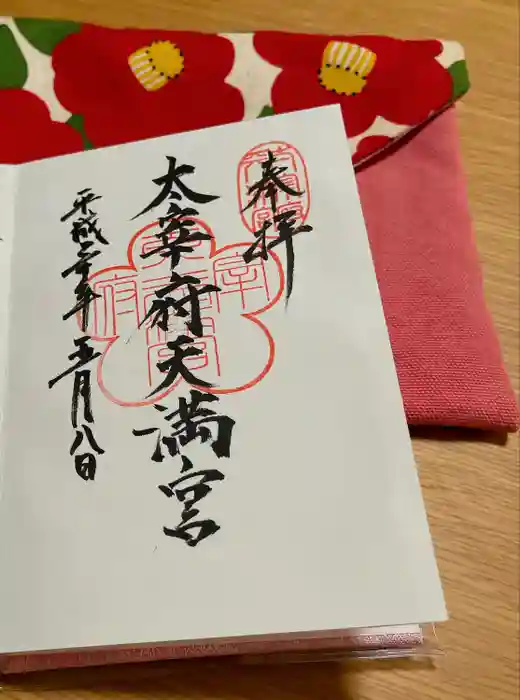 奉拝
太宰府天満宮
平成二十年五月八日